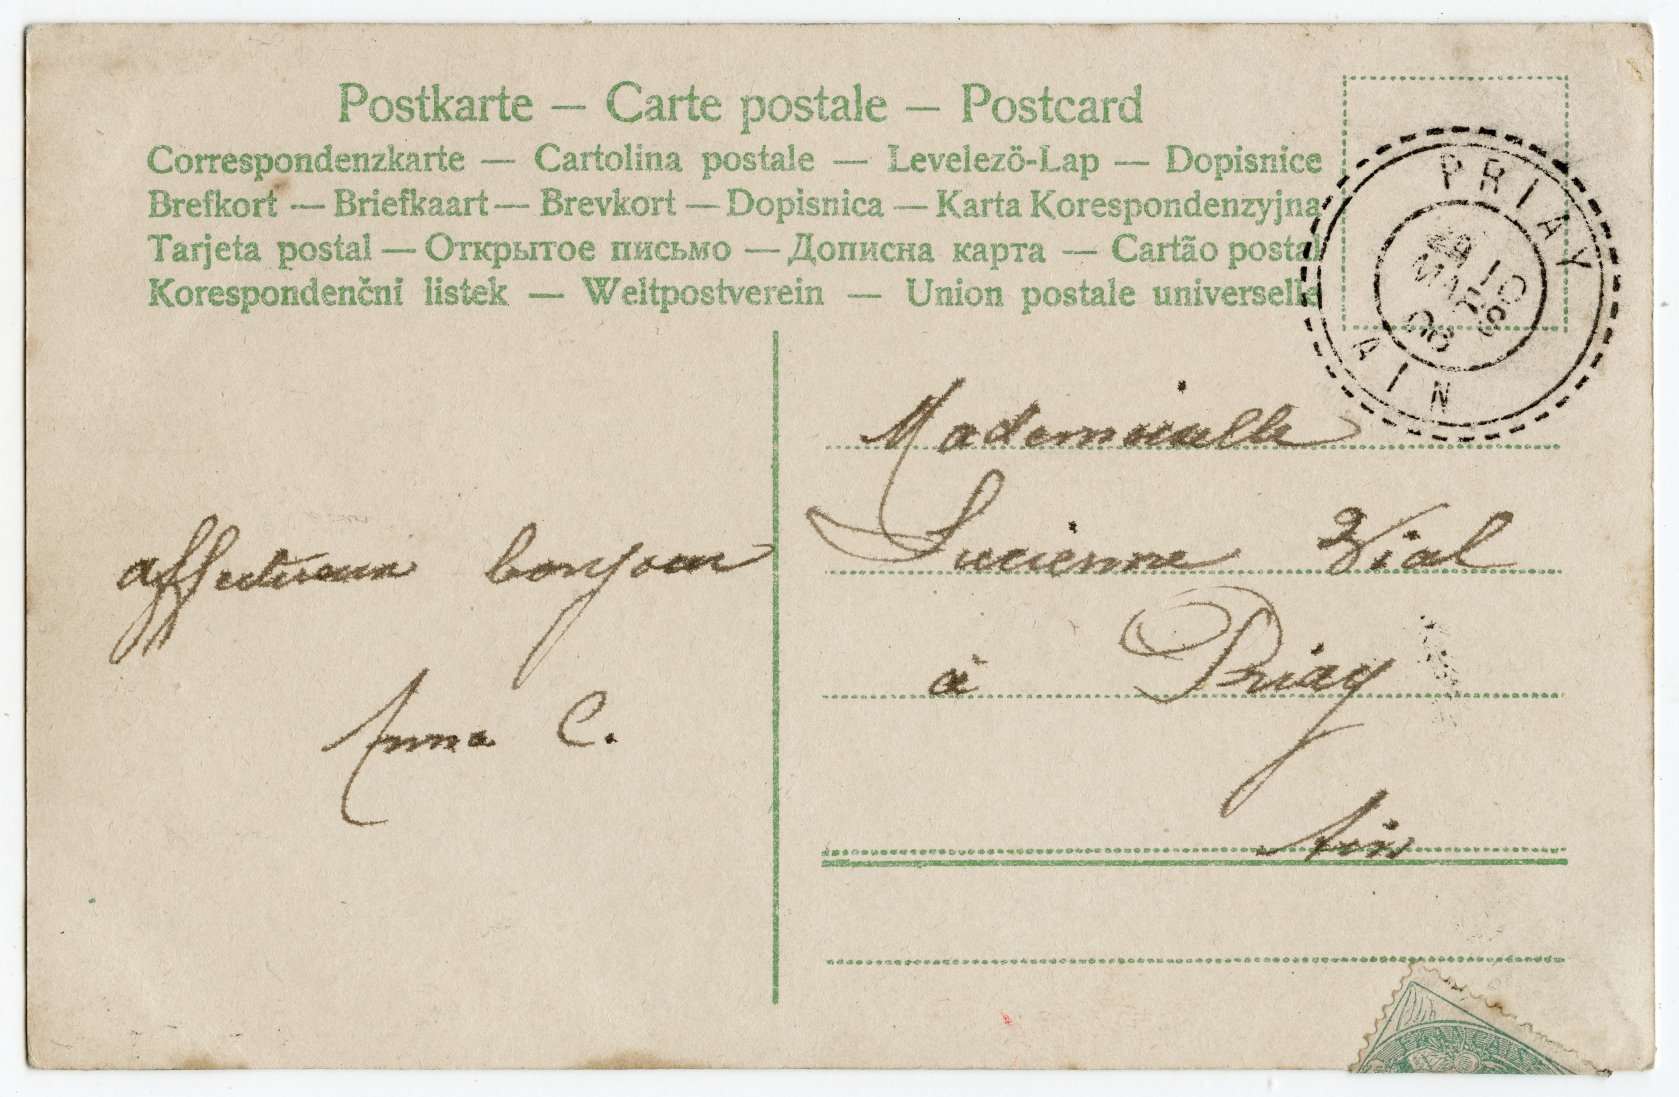 Postkarte — Carte postale — Postcard
Correspondenzkarte — Cartolina postale — Levelező-Lap — Dopisnice
Brefkort — Briefkaart — Brevkort — Dopisnica — Karta Korespondenzyjna
Tarjeta postal — Открытое письмо — Дописна карта — Cartão postal
Korespondenčni listek — Weltpostverein — Union postale universelle
PRIAY
10
MARS
08
AIN
Mademoiselle
Lucienne Vial
à Priay
Ain
affectueux bonjour
Anna C.
FRANÇAISE